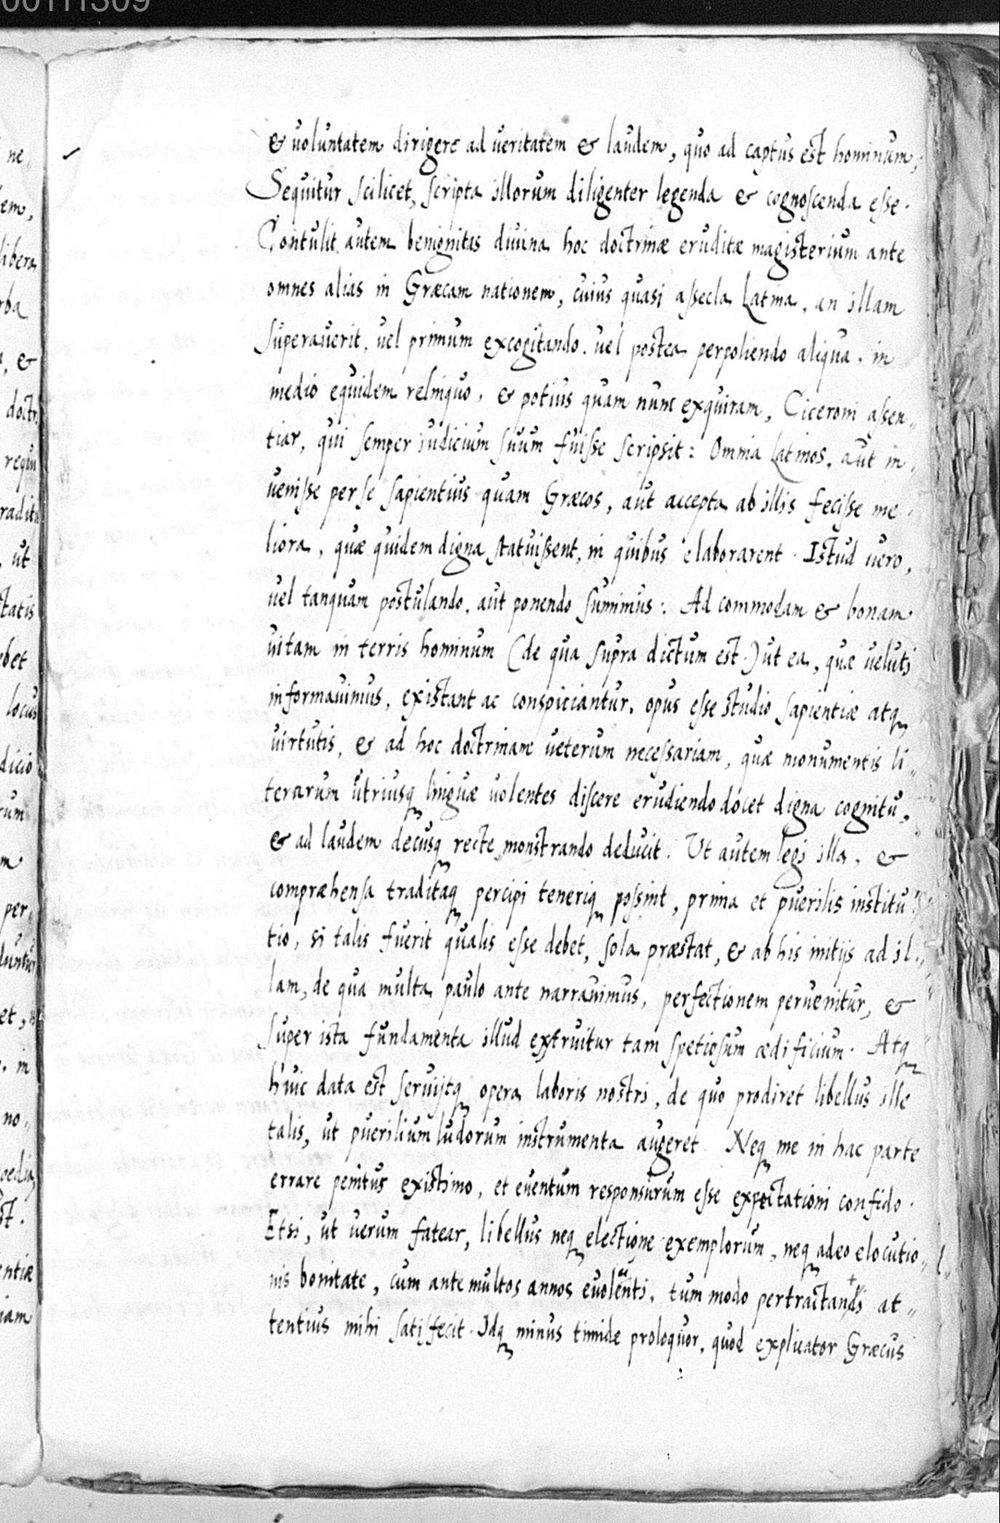 00111309
& uoluntatem dirigere ad ueritatem & laudem, quo ad captus est hominum,
Sequitur scilicet, scripta illorum diligenter legenda & cognoscenda esse.
Contulit autem benignitas diuina hoc doctrinæ eruditæ magisterium ante
omnes alias in Græcam nationem, cuius quasi assecla Latina, an illam
superauerit, uel primum excogitando, uel postea perpoliendo aliqua, in
medio equidem relinquo, & potius quam nunc exquiram, Ciceroni assen,,
tiar, qui semper iudicium suum fuisse scripsit: Omnia Latinos, aut in,,
uenisse per se sapientius quam Græcos, aut accepta ab illis fecisse me,,
liora, quæ quidem digna statuissent, in quibus elaborarent. Istud uero,
uel tanquam postulando, aut ponendo sumimus: Ad commodam & bonam
uitam in terris hominum (de qua supra dictum est) ut ea, quæ ueluti
informauimus, existant ac conspiciantur, opus esse studio sapientiæ atq
uirtutis, & ad hoc doctrinam ueterum necessariam, quæ monumentis li,,
terarum utriusq linguæ uolentes discere erudiendo docet digna cognitu,
& ad laudem decusq recte monstrando deducit. Ut autem legi illa, &
compræhensa traditaq percipi teneriq possint, prima et puerilis institu,,
tio, si talis fuerit qualis esse debet, sola præstat, & ab his initijs ad il,,
lam, de qua multa paulo ante narrauimus, perfectionem peruenitur, &
super ista fundamenta illud extruitur tam spetiosum ædificium. Atq
huic data est seruijtq opera laboris nostri, de quo prodiret libellus ille
talis, ut puerilium ludorum instrumenta augeret. Neq me in hac parte
errare penitus existimo, et euentum responsurum esse expectationi confido.
Etsi, ut uerum fatear, libellus neq electione exemplorum, neq adeo elocutio,,
nis bonitate, cum ante multos annos euoluenti, tum modo pertractandi at,,
tentius mihi satisfecit. Idq minus timide proloquor, quod explicator Græcus